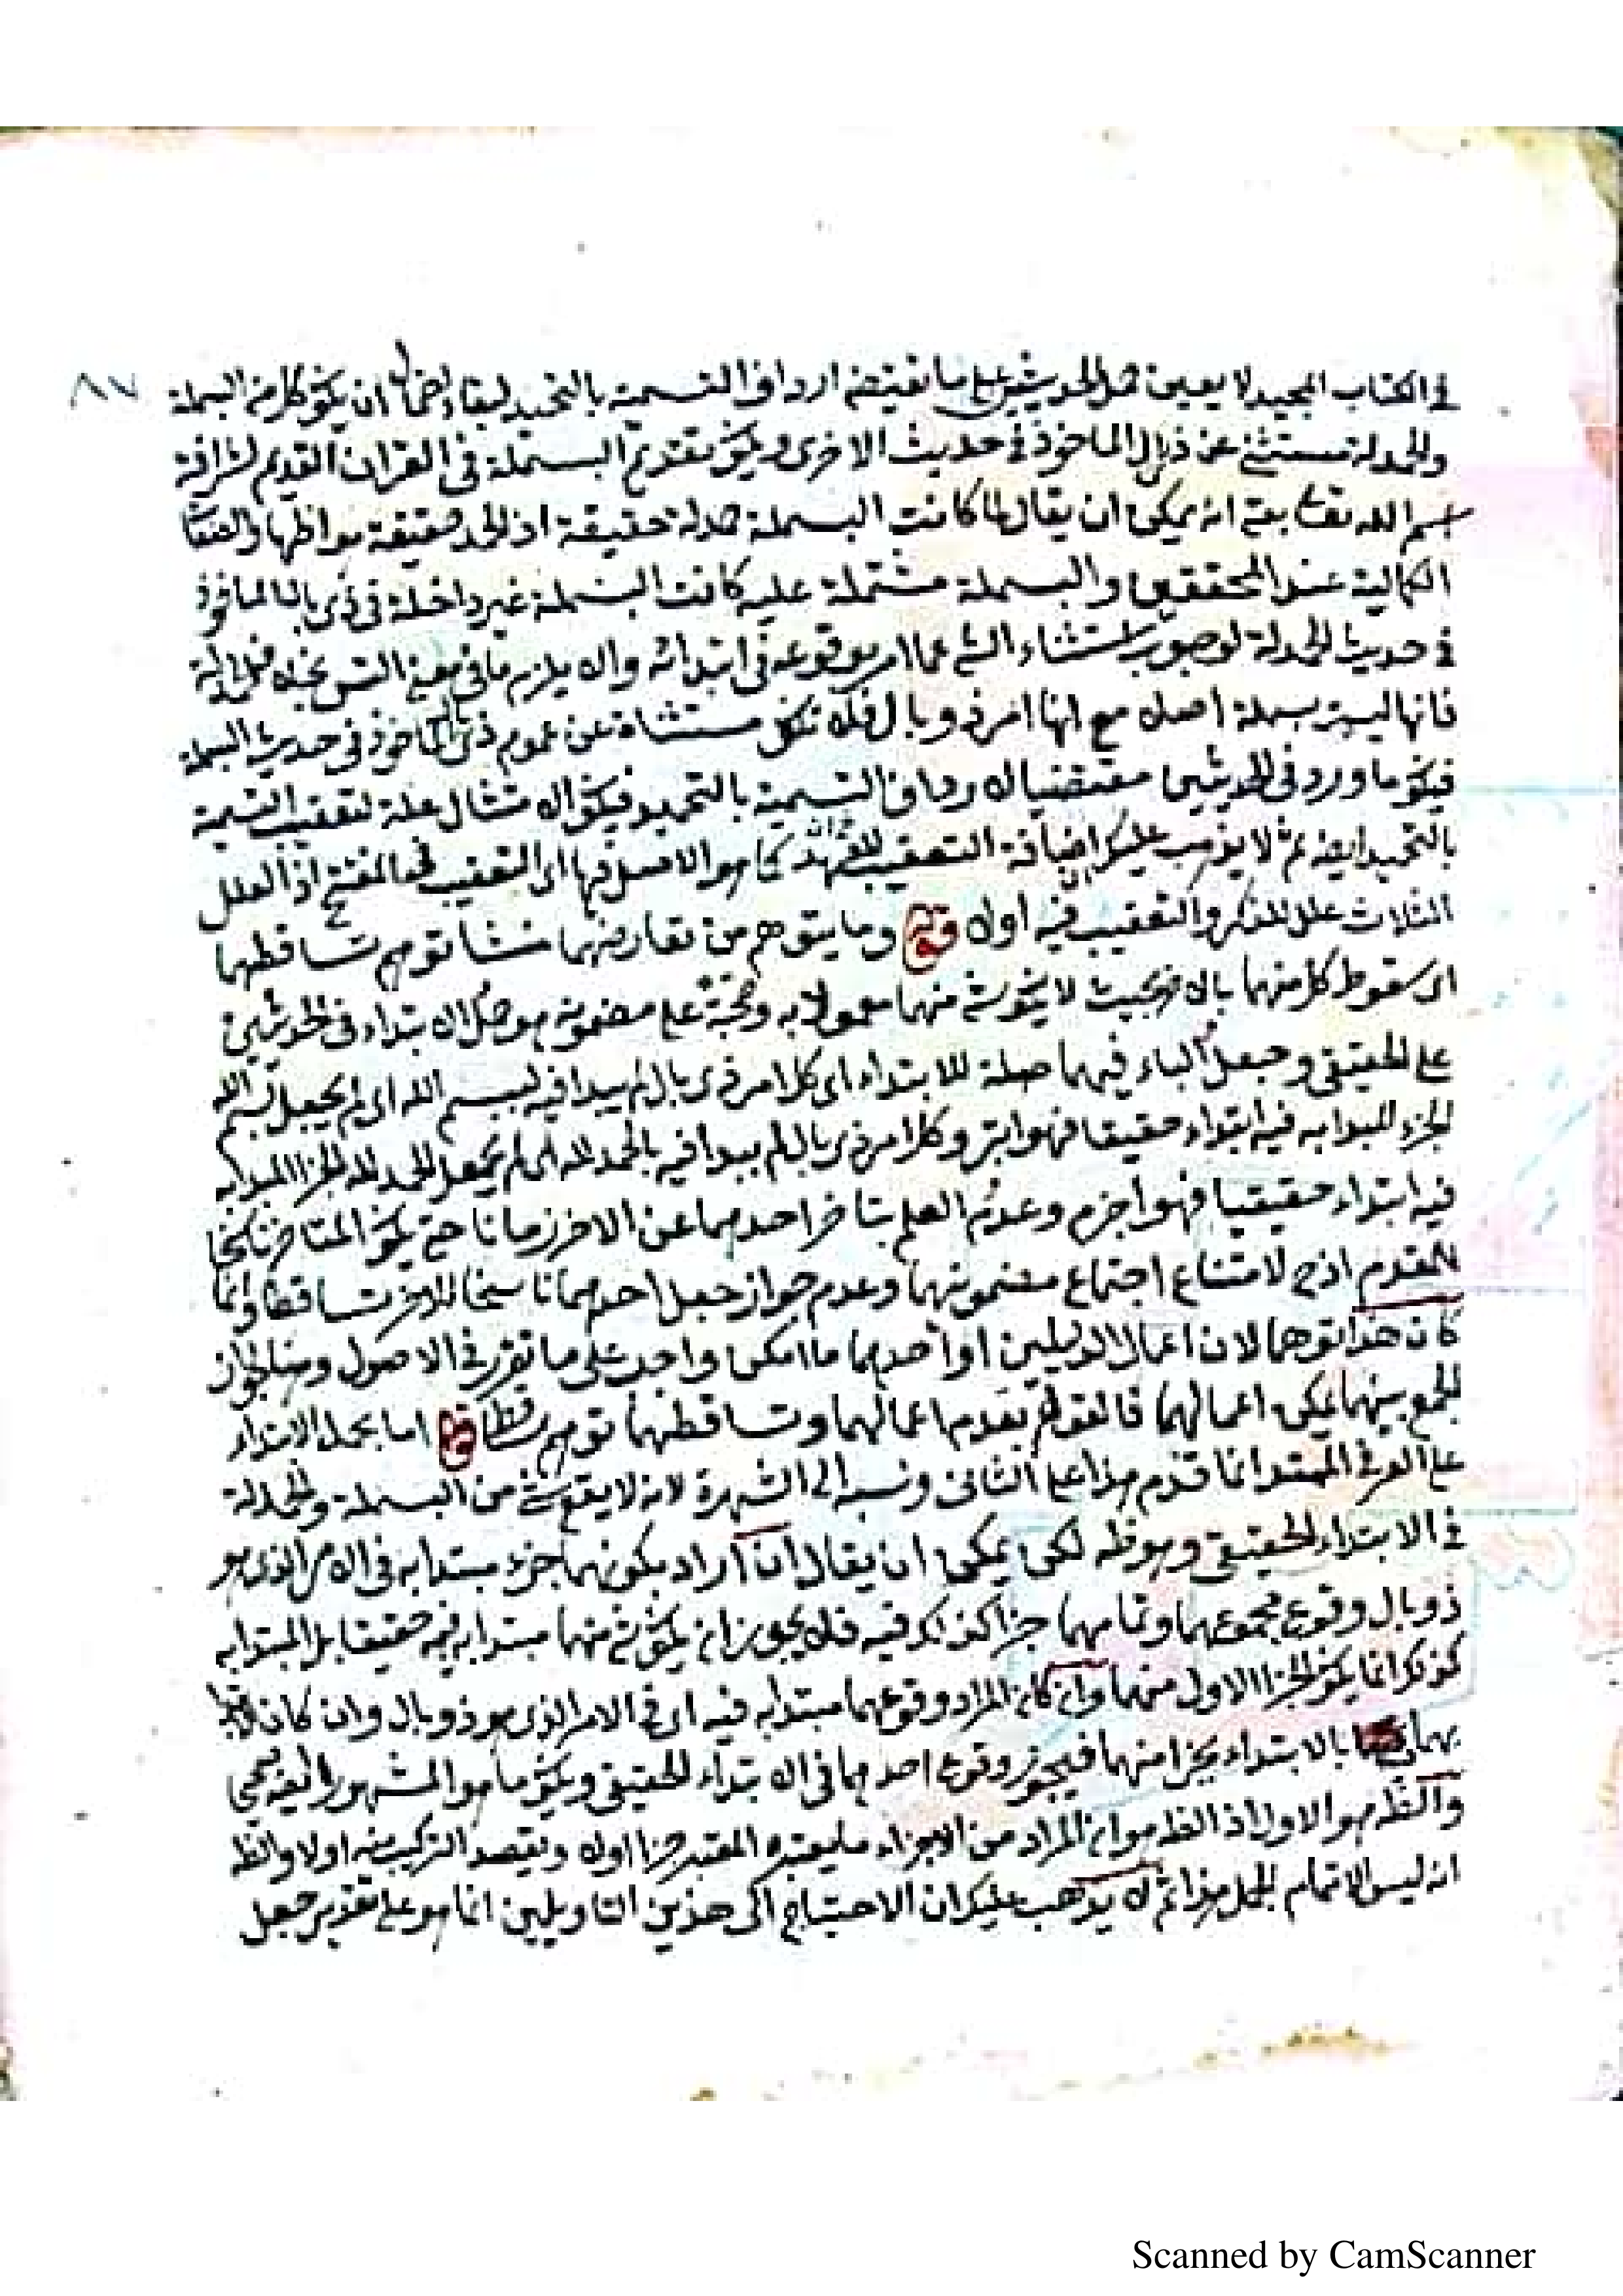 ٨٧
في الكتاب المجيد لا يعين حمل الحديثين على ما يقتضيه ارداف التسمية بالتحميد لبقاء احتمال ان يكون كل من البسملة
والحمدلة مستثنى عن ذي البال الماخوذ في حديث الاخرى ويكون تقديم البسملة في القران القديم لشرافة
بسم الله تعالى بقي انه يمكن ان يقال لما كانت البسملة حمدلة حقيقة اذ الحمد حقيقة هو اظهار الصفات
الكمالية عند المحققين والبسملة مشتملة عليه كانت البسملة غير داخلة في ذي بال الماخوذ
في حديث الحمدلة لوجوب استثناء الشيء عما امر بوقوعه في ابتدائه والا يلزم ما في معنى التس بخلاف الحمدلة
فانها ليست بسملة اصلا مع انها امر ذو بال فلا تكون مستثناة عن عموم ذي البال الماخوذ في حديث البسملة
فيكون ما ورد في الحديثين مقتضيا لارداف التسمية بالتحميد فيكون الامتثال علة لتعقيب التسمية
بالتحميد ايضا ثم لا يذهب عليك ان اضافة التعقيب للعهد كما هو الاصل فيها اي التعقيب في المفتتح اذ العلل
الثلاث علل للذكر والتعقيب فيه اولا قوله وما يتوهم من تعارضهما منشا توهم تساقطهما
اي سقوط كل منهما بالاخر بحيث لا يكون شيء منهما معمولا به وحجة على مضمونه هو حمل الابتداء في الحديثين
على الحقيقي وجعل الباء فيهما صلة للابتداء اي كل امر ذي بال لم يبدا فيه ببسم الله اي لم يجعل بسم الله
الجزء المبدا به فيه ابتداء حقيقيا فهو ابتر وكل امر ذي بال لم يبدا فيه بالحمد لله اي لم يجعل الحمد لله الجزء المبدا به
فيه ابتداء حقيقيا فهو اجزم وعدم العلم بتاخر احدهما عن الاخر زمانا حتى يكون المتاخر ناسخا
للمقدم اذ ح لامتناع اجتماع مضمونهما وعدم جواز جعل احدهما ناسخا للاخر تساقطا وانما
كان هذا توهما لان اعمال الدليلين او احدهما ما امكن واجب على ما تقرر في الاصول وهنا لجواز
الجمع بينهما يمكن اعمالهما فالقول بعدم اعمالهما وتساقطهما توهم ساقط قوله اما بحمل الابتداء
على العرفي الممتد انما قدم هذا على الثاني ونسبه الى الشهرة لانه لا يقع شيء من البسملة والحمدلة
في الابتداء الحقيقي وهو ظ لكن يمكن ان يقال ان اراد بكونهما جزء مبتدا به في الامر الذي هو
ذو بال وقوع مجموعهما وتمامهما جزا كذلك فيه فلا يجوز ان يكون شيء منهما مبتدا به فيه حقيقيا بل المبتدا به
كذلك انما يكون الجزء الاول منهما وان كان المراد وقوعهما مبتدا به فيه اي في الامر الذي هو ذو بال وان كان الابتداء
بهما بالابتداء بجزء منهما فيجوز وقوع احدهما في الابتداء الحقيقي ويكون ما هو المشهور الغير صحيح
والظ هو الاول اذ الظ هو ان المراد من الاجزاء ما يعتبره المعتبر جزا اولا ويقصد التركيب منه اولا والظ
انه ليس الا تمام الجمل هذا ثم لا يذهب عليك ان الاحتياج الى هذين التاويلين انما هو على تقدير جعل
Scanned by CamScanner